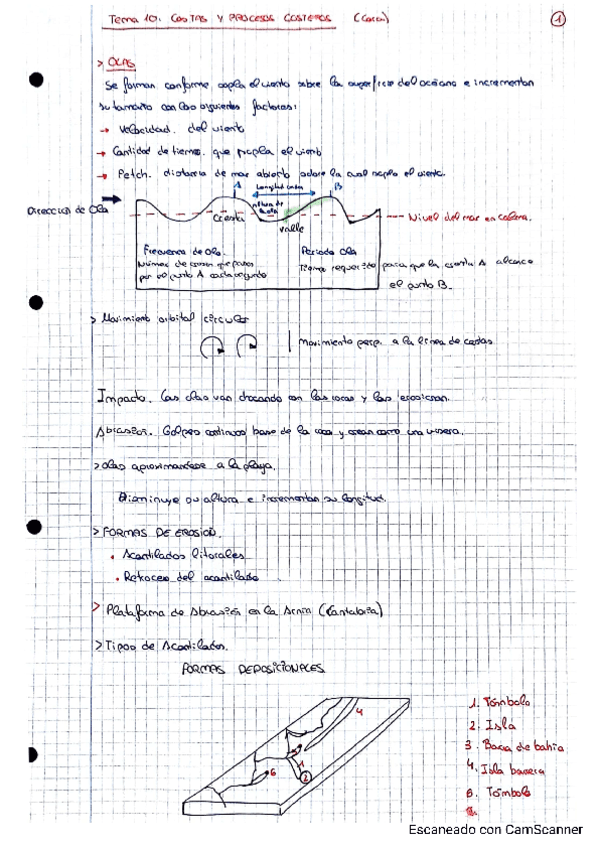 Tema 10. COSTAS Y PROCESOS COSTEROS
1
> OLAS
Se forman conforme sopla el viento sobre la superficie del océano e incrementan
su tamaño con los siguientes factores:
→ Velocidad del viento
→ Cantidad de tiempo que sopla el viento
→ Fetch. distancia de mar abierto sobre la cual sopla el viento.
A
Longitud onda
B
Dirección de Ola
altura de
Cresta
valle
Nivel del mar en calma.
Frecuencia de Ola.
Número de que pasan
por el punto A cada segundo
Periodo Ola
Tiempo requerido para que la cresta A alcance
el punto B.
> Movimiento orbital circular
Movimiento perp. a la línea de costas
Impacto. Las olas van chocando con las rocas y las erosionan.
Abrasión. Golpeo continuo base de la roca y crean como una visera.
> Olas aproximandose a la playa.
Disminuye su altura e incrementan su longitud.
> FORMAS DE EROSIÓN.
• Acantilados litorales
• Retroceso del acantilado
> Plataforma de Abrasión en la Arnía (Cantabria)
> Tipos de Acantilados.
FORMAS DEPOSICIONALES
4
1
6
2
1. Tómbolo
2. Isla
3. Barra de bahía
4. Isla barrera
6. Tómbolo
Escaneado con CamScanner